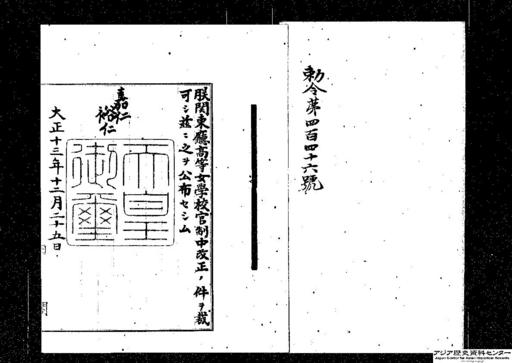 勅令第四百四十六號
朕関東廳高等女學校官制中改正ノ件ヲ裁
可シ茲ニ之ヲ公布セシム
嘉仁
裕仁
天皇
御璽
大正十三年十二月二十五日
アジア歴史資料センター
Japan Center for Asian Historical Records